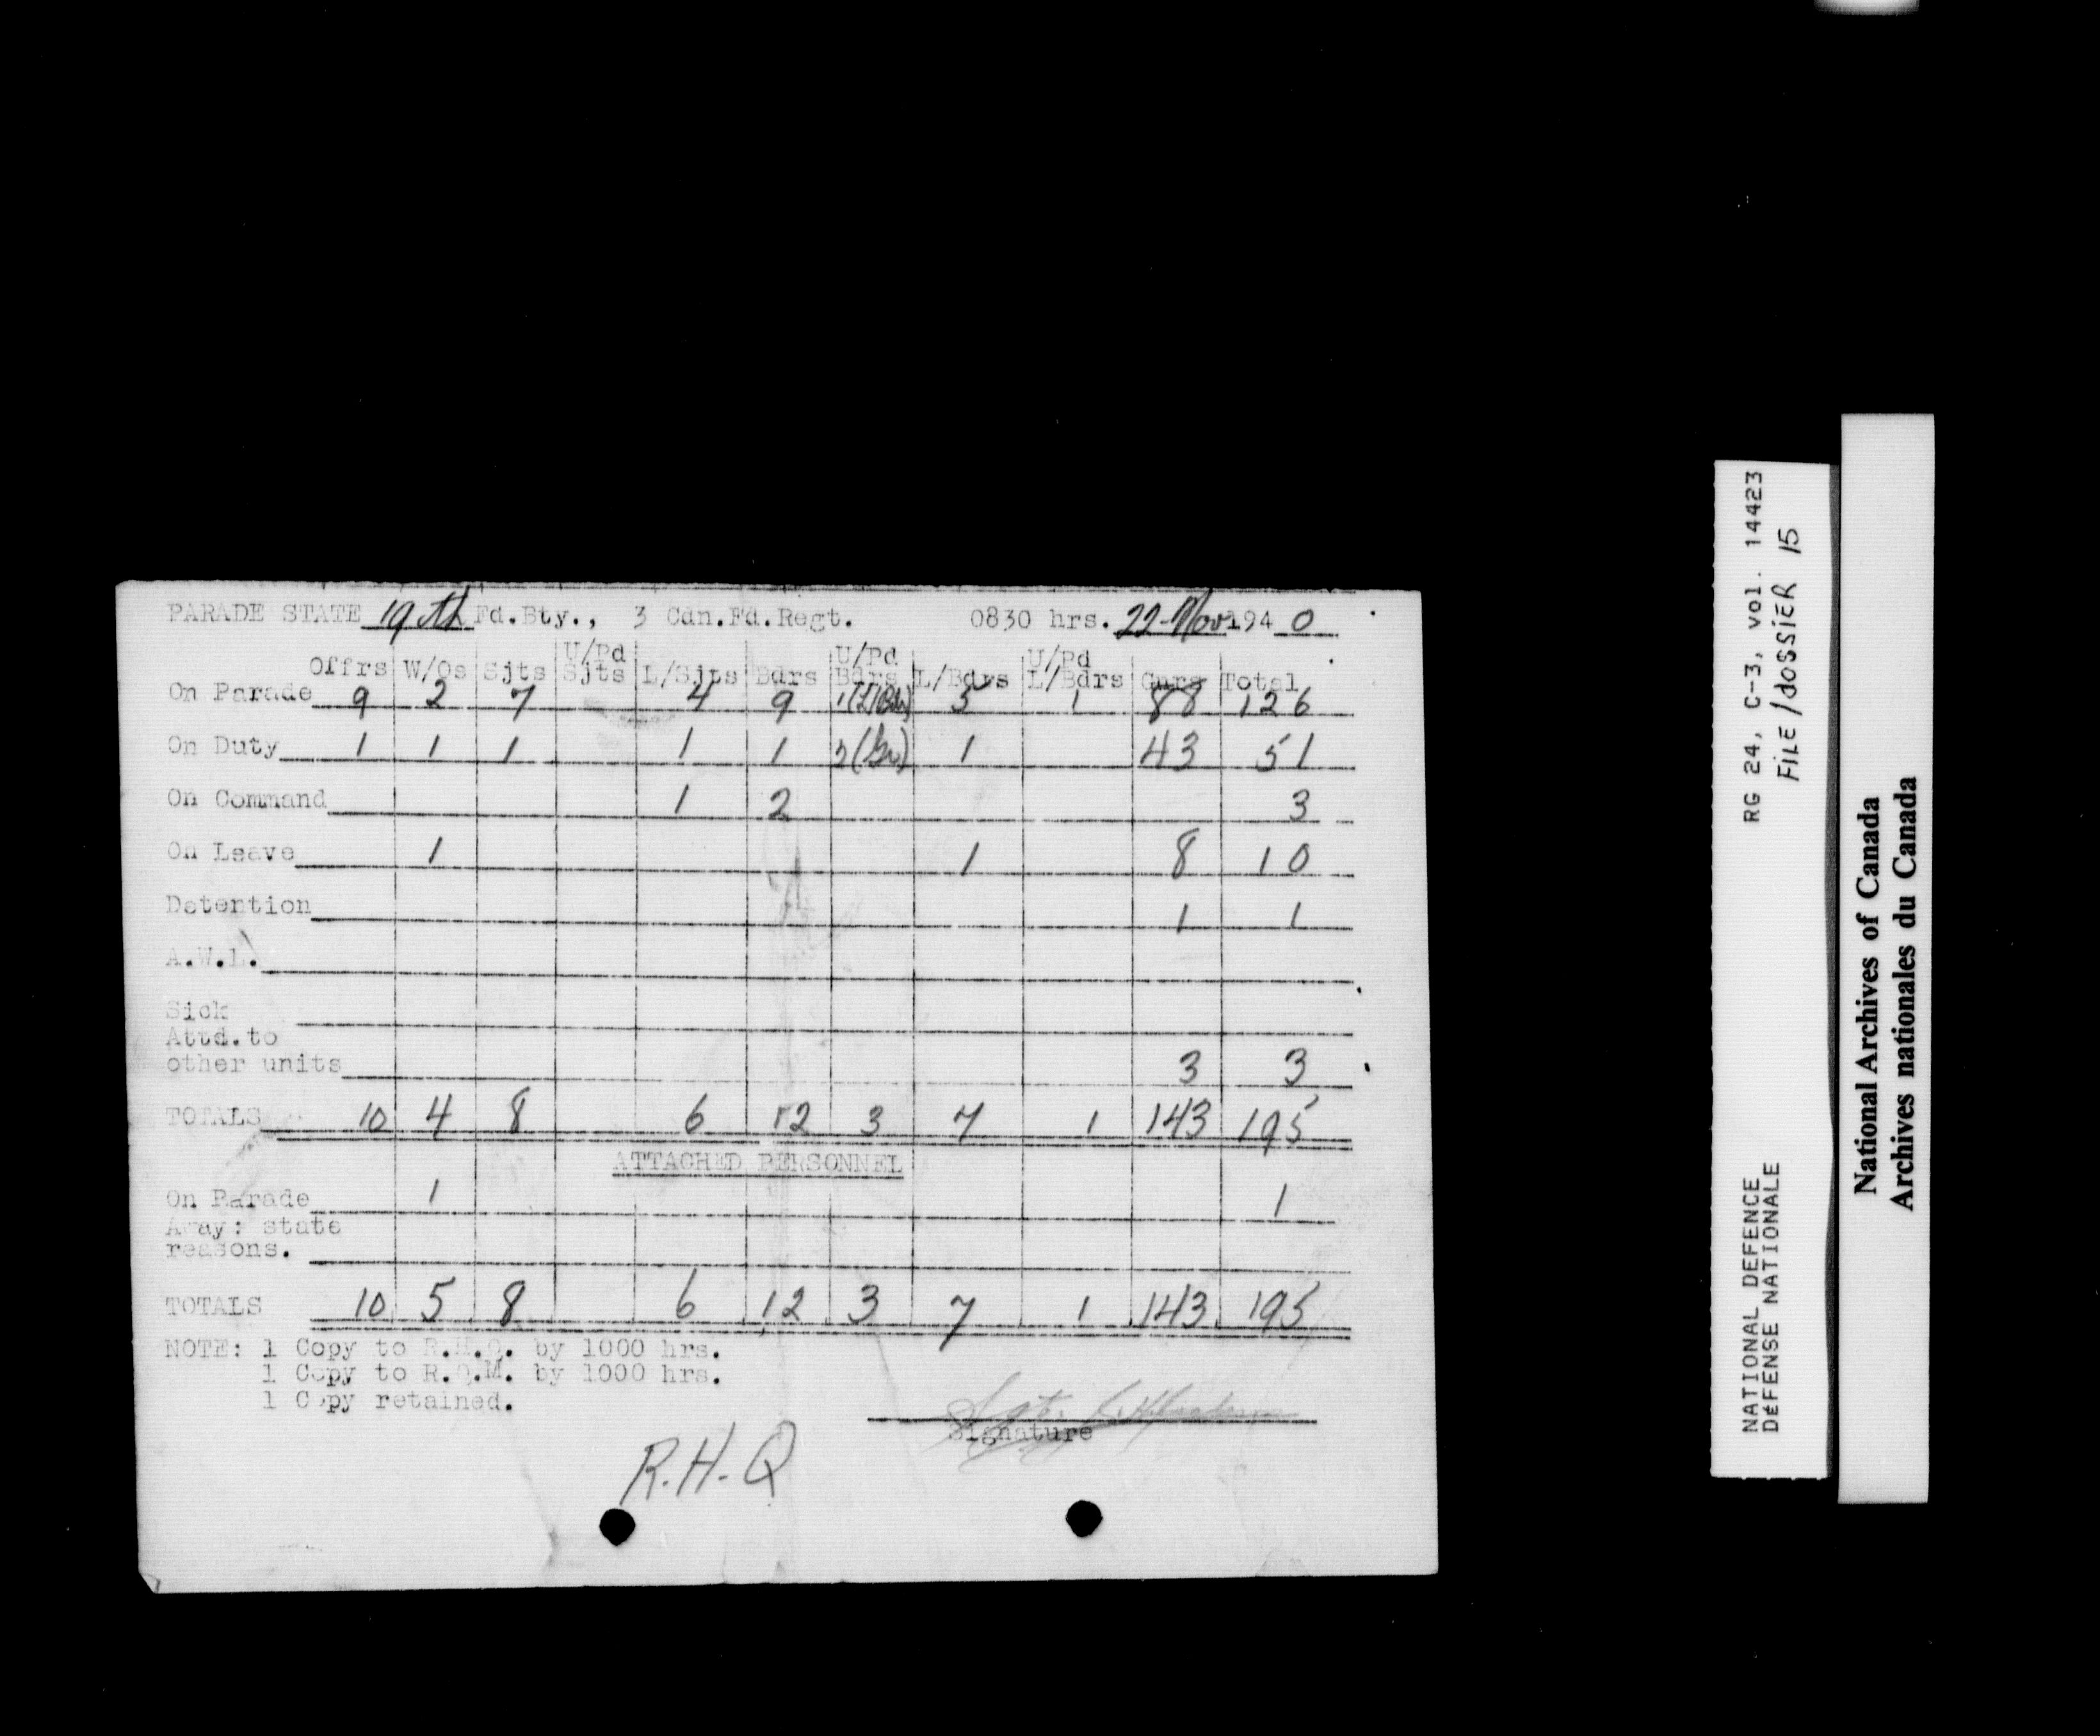 PARADE STATE 19th Fd.Bty., 3 Cdn.Fd.Regt. 0830 hrs. 22-Nov 1940
Offrs W/Os Sjts U/Pd Sjts L/Sjts Bdrs U/Pd Bdrs L/Bdrs U/Pd L/Bdrs Gnrs Total
On Parade 9 2 7 4 9 1(L/Bdr) 5 1 88 126
On Duty 1 1 1 1 1 2(Gnr) 1 43 51
On Command 1 2 3
On Leave 1 1 8 10
Detention 1 1
A.W.L.
Sick
Attd.to
other units 3 3
TOTALS 10 4 8 6 12 3 7 1 143 195
ATTACHED PERSONNEL
On Parade 1 1
Away: state
reasons.
TOTALS 10 5 8 6 12 3 7 1 143 195
NOTE: 1 Copy to R.H.Q. by 1000 hrs.
1 Copy to R.Q.M. by 1000 hrs.
1 Copy retained.
Sgt.
Signature
R.H.Q
RG 24, C-3, vol. 14423
FILE/dossiER 15
NATIONAL DEFENCE
DÉFENSE NATIONALE
National Archives of Canada
Archives nationales du Canada